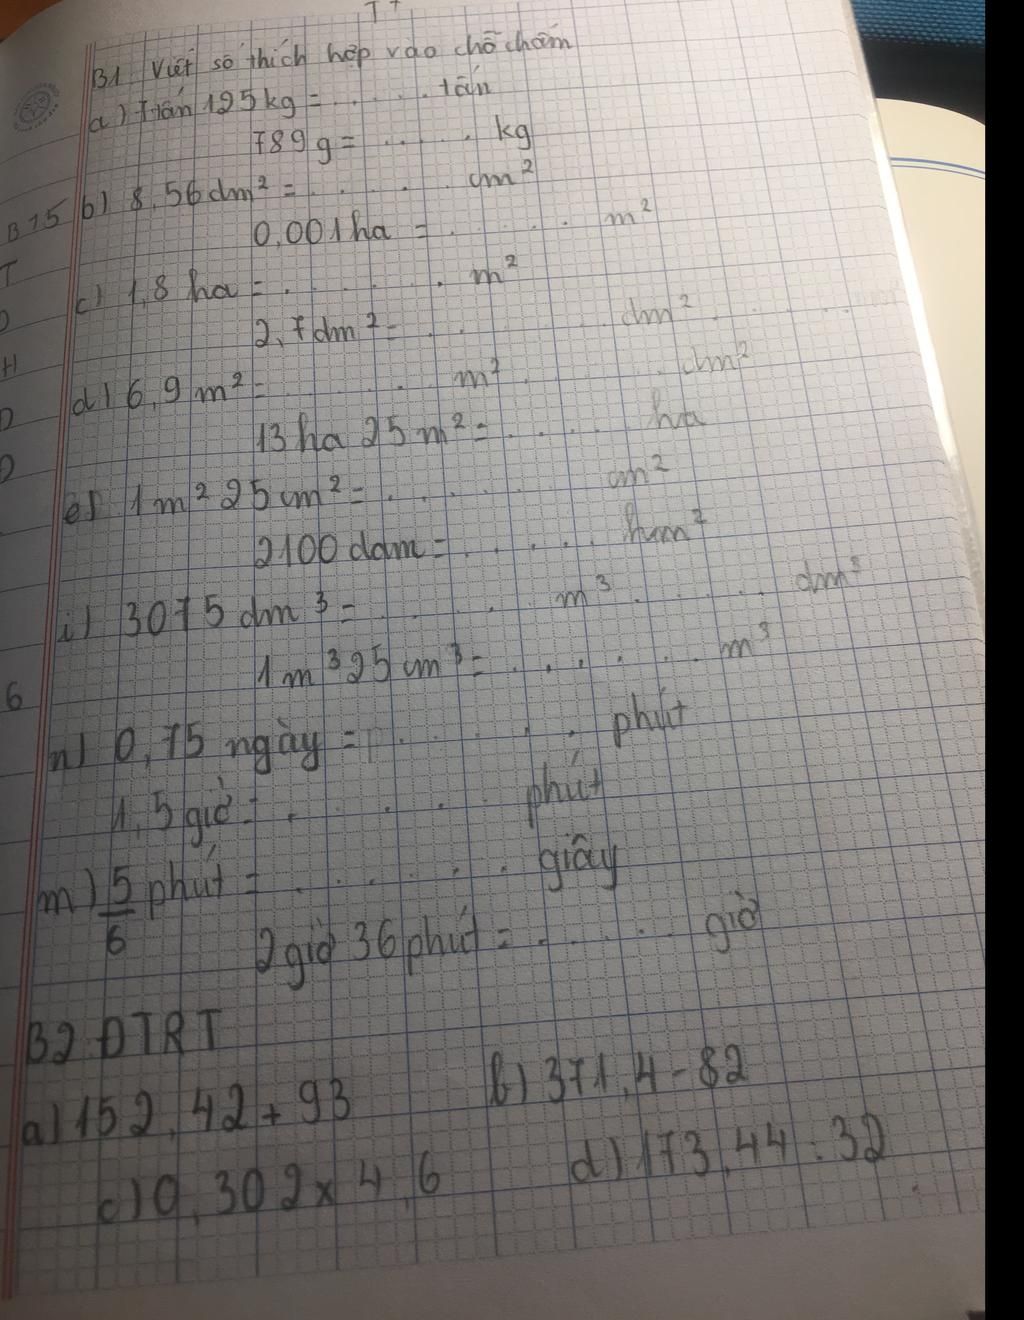 B1 Viết số thích hợp vào chỗ chấm
a) 7 tấn 125 kg = ..... tấn
789 g = ..... kg
b) 8,56 dm² = ..... cm²
0,001 ha = ..... m²
c) 1,8 ha = ..... m²
2,7 dm² = ..... dm² .....
d) 6,9 m² = ..... m² ..... dm²
13 ha 25 m² = ..... ha
e) 1 m² 25 cm² = ..... cm²
2100 dam = ..... hm²
i) 3075 dm³ = ..... m³ ..... dm³
1 m³ 25 cm³ = ..... m³
n) 0,75 ngày = ..... phút
1,5 giờ = ..... phút
m) 5/6 phút = ..... giây
2 giờ 36 phút = ..... giờ
B2 ĐTRT
a) 152,42 + 93 b) 371,4 - 82
c) 0,302 x 4,6 d) 173,44 : 32